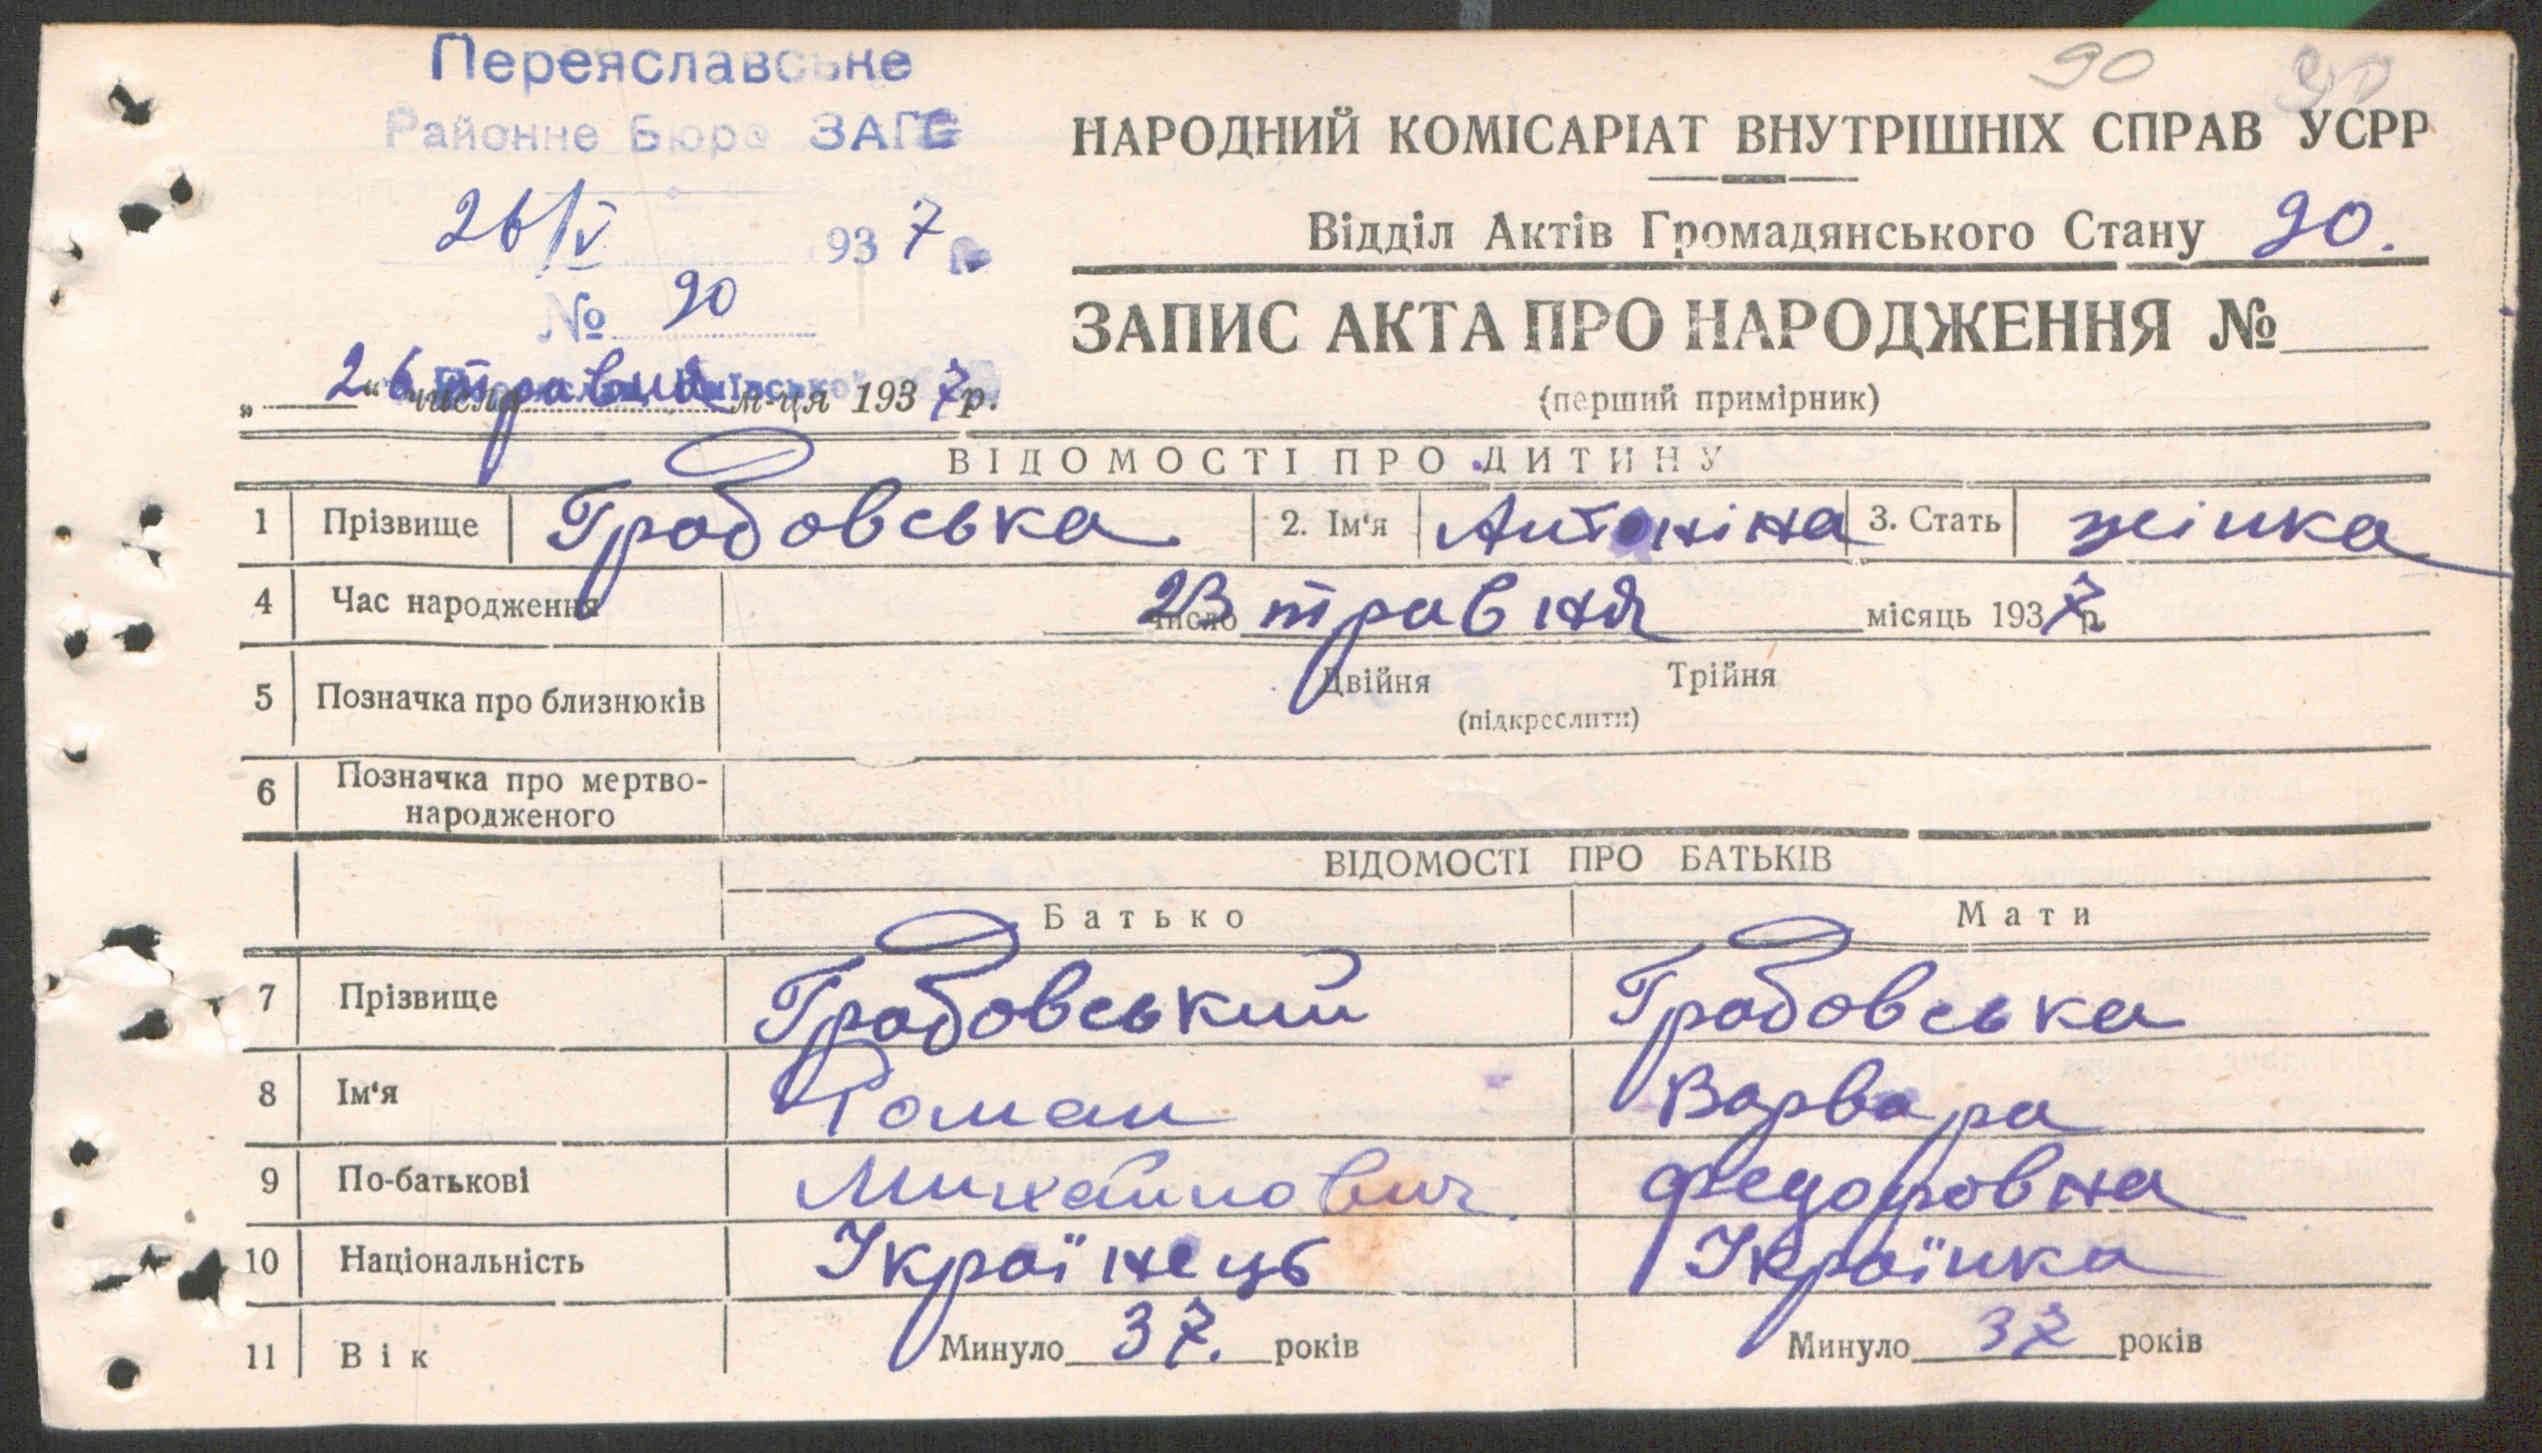 90 90
Переяславське
Районне Бюро ЗАГС
26/V 1937 р.
№ 90
НАРОДНИЙ КОМІСАРІАТ ВНУТРІШНІХ СПРАВ УСРР
Відділ Актів Громадянського Стану 90.
ЗАПИС АКТА ПРО НАРОДЖЕННЯ №
(перший примірник)
„26“ числа травня м-ця 1937 р.
ВІДОМОСТІ ПРО ДИТИНУ
1 Прізвище Грабовська 2. Ім'я Антоніна 3. Стать жінка
4 Час народження 23 число травня місяць 1937 р
5 Позначка про близнюків Двійня Трійня
(підкреслити)
6 Позначка про мертво-
народженого
ВІДОМОСТІ ПРО БАТЬКІВ
Батько Мати
7 Прізвище Грабовський Грабовська
8 Ім'я Роман Варвара
9 По-батькові Михайлович Федоровна
10 Національність Українець Українка
11 Вік Минуло 37. років Минуло 37 років